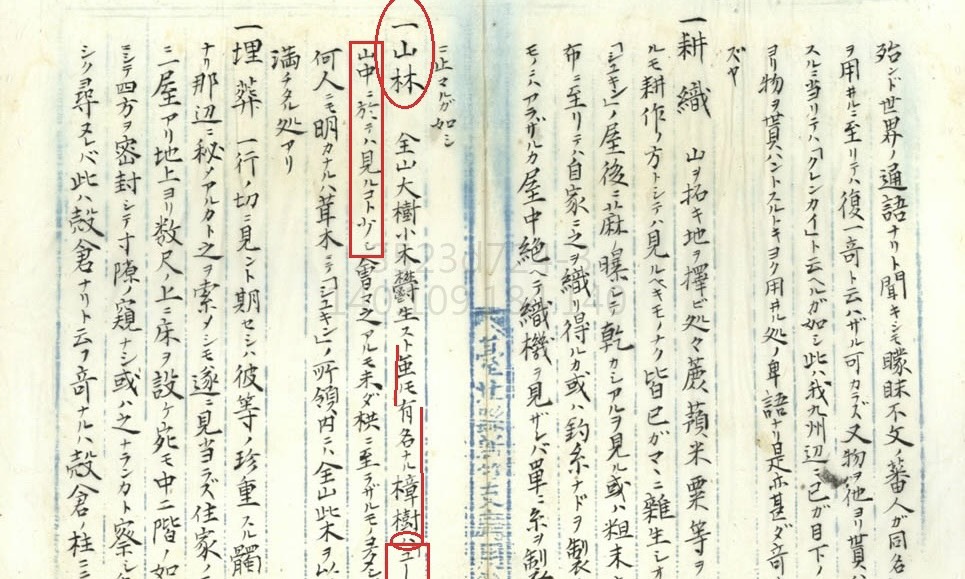 殆ンド世界ノ通語ナリト聞キシモ矇昧不文ノ番人ガ同名
ヲ用井ルニ至リテハ復一奇ト云ハザル可カラズ又物ヲ他ヨリ貰ハ
スルニ当リテハ「クレンカイ」ト云ヘルガ如シ此ハ我九州辺ニ己が目下ノ
ヨリ物ヲ貰ハントスルトキヨク用井ル処ノ卑語ナリ是亦甚ダ奇
ズヤ
一耕織 山ヲ拓キ地ヲ擇ビ処々蕨 米粟等ヲ
ルモ耕作ノ方トシテハ見ルベキモノナク皆已ガマニ雜生シオ
「ジュキン」ノ屋後ニ麻ノ曝シテ乾カシアルヲ見ル或ハ粗末
布ニ至リテハ自家ニ之ヲ織リ得ルカ或ハ釣糸ナドヲ製
モノニハアラザルカ屋中絶ヘテ織機ヲ見ザレバ單ニ糸ヲ制
ニ止マルガ如シ
一山林 全山大樹小木欝生スト雖モ有名ナル樟樹ハ
山中ニ於テハ見ルコト少シ會マ之アルモ未ダ栱ニ至ラザルモノヨ
何人ニモ明カナルハ茸木ニテ「ジュキン」ノ所領内ニハ全山此木ヲ以
満チタル処アリ
一埋葬 一行ノ切ニ見ント期セシハ彼等ノ珍重スル髑
ナリ那辺ニ秘メアルカト之ヲ索メシモ遂ニ見当ラズ住家ノ
ニ屋アリ地上ヨリ数尺上ニ床ヲ設ケ宛モ中二階ノ如
ミテ四方ヲ密封シテ寸隙ノ窺ナシ或ハ之ナランカト察シ
シク尋ヌレバ此ハ穀倉ナリト云フ奇ナルハ穀倉ノ柱ニ